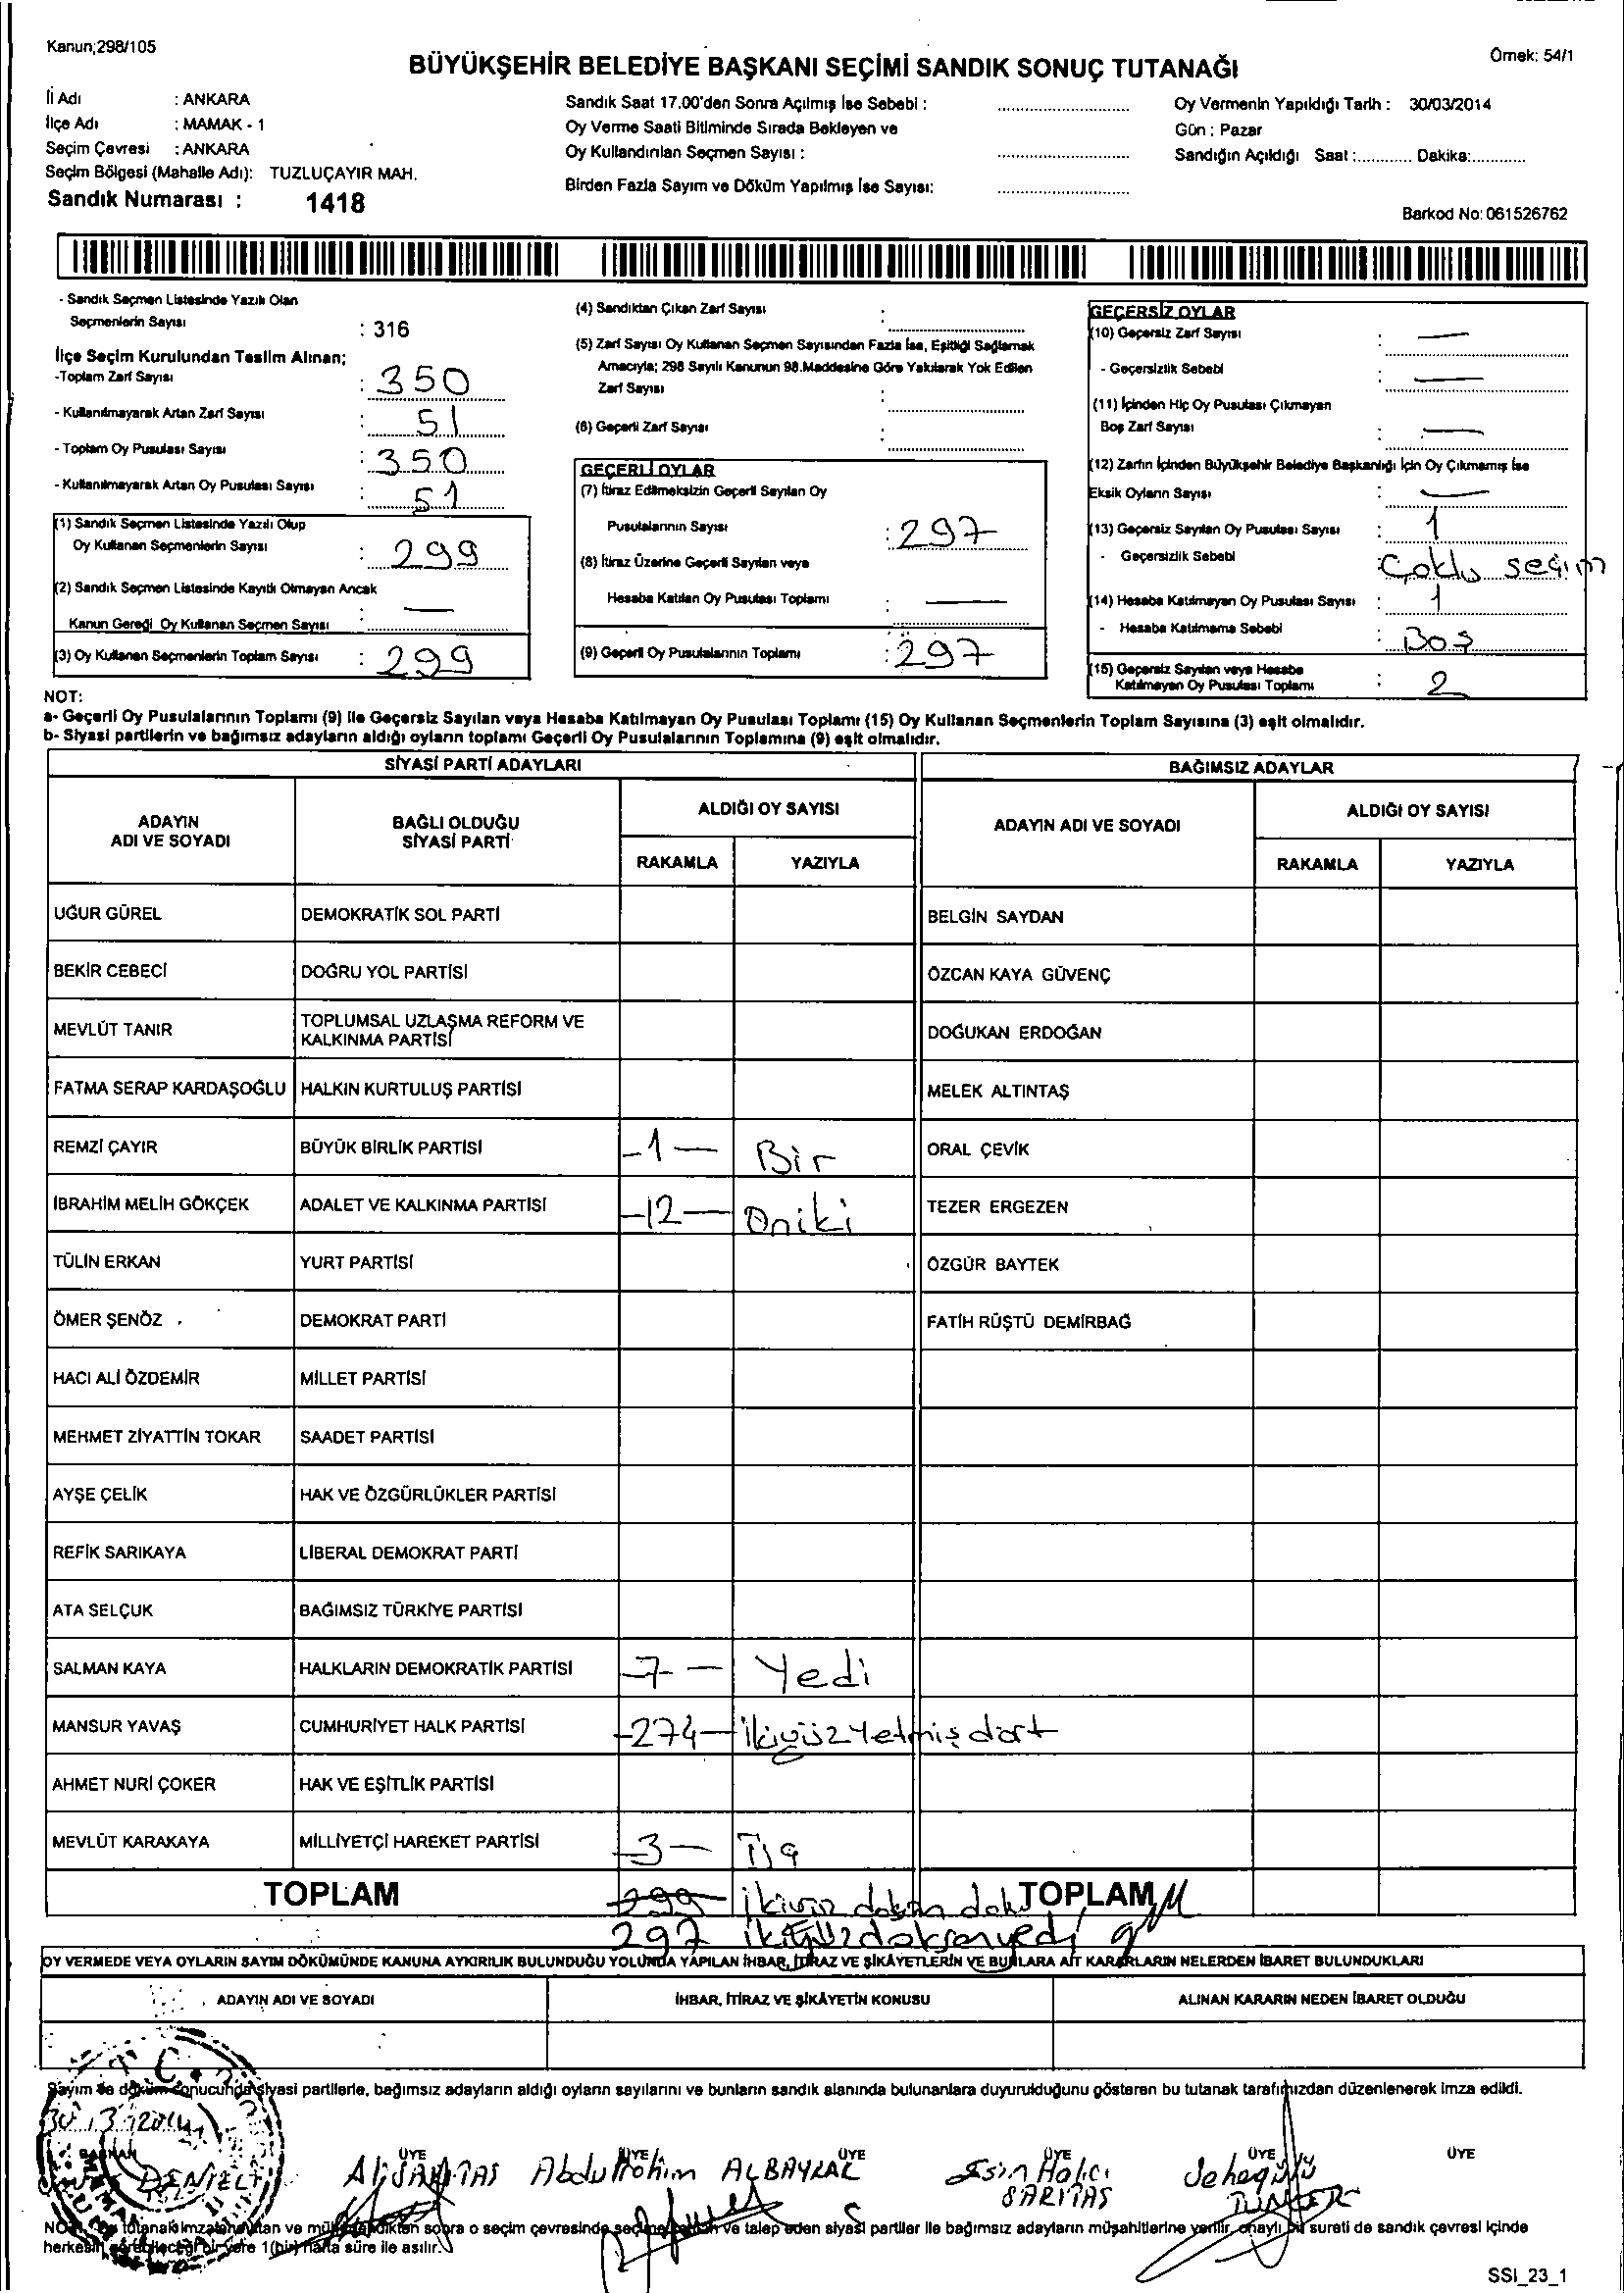 Kanun;298/105
Örnek: 54/1
BÜYÜKŞEHİR BELEDİYE BAŞKANI SEÇİMİ SANDIK SONUÇ TUTANAĞI
İl Adı : ANKARA
İlçe Adı : MAMAK - 1
Seçim Çevresi : ANKARA
Seçim Bölgesi (Mahalle Adı): TUZLUÇAYIR MAH.
Sandık Numarası : 1418
Sandık Saat 17.00'den Sonra Açılmış İse Sebebi :
Oy Verme Saati Bitiminde Sırada Bekleyen ve
Oy Kullandırılan Seçmen Sayısı :
Birden Fazla Sayım ve Döküm Yapılmış İse Sayısı:
Oy Vermenin Yapıldığı Tarih : 30/03/2014
Gün : Pazar
Sandığın Açıldığı Saat :............ Dakika:............
Barkod No: 061526762
- Sandık Seçmen Listesinde Yazılı Olan
Seçmenlerin Sayısı : 316
İlçe Seçim Kurulundan Teslim Alınan;
-Toplam Zarf Sayısı : 350
- Kullanılmayarak Artan Zarf Sayısı : 51
- Toplam Oy Pusulası Sayısı : 350
- Kullanılmayarak Artan Oy Pusulası Sayısı : 51
(1) Sandık Seçmen Listesinde Yazılı Olup
Oy Kullanan Seçmenlerin Sayısı : 299
(2) Sandık Seçmen Listesinde Kayıtlı Olmayan Ancak
Kanun Gereği Oy Kullanan Seçmen Sayısı : —
(3) Oy Kullanan Seçmenlerin Toplam Sayısı : 299
(4) Sandıktan Çıkan Zarf Sayısı :
(5) Zarf Sayısı Oy Kullanan Seçmen Sayısından Fazla İse, Eşitliği Sağlamak
Amacıyla; 298 Sayılı Kanunun 98.Maddesine Göre Yakılarak Yok Edilen
Zarf Sayısı :
(6) Geçerli Zarf Sayısı :
GEÇERLİ OYLAR
(7) İtiraz Edilmeksizin Geçerli Sayılan Oy
Pusulalarının Sayısı : 297
(8) İtiraz Üzerine Geçerli Sayılan veya
Hesaba Katılan Oy Pusulası Toplamı : —
(9) Geçerli Oy Pusulalarının Toplamı : 297
GEÇERSİZ OYLAR
(10) Geçersiz Zarf Sayısı : —
- Geçersizlik Sebebi : —
(11) İçinden Hiç Oy Pusulası Çıkmayan
Boş Zarf Sayısı : —
(12) Zarfın İçinden Büyükşehir Belediye Başkanlığı İçin Oy Çıkmamış İse
Eksik Oyların Sayısı : —
(13) Geçersiz Sayılan Oy Pusulası Sayısı : 1
- Geçersizlik Sebebi : Çoklu seçim
(14) Hesaba Katılmayan Oy Pusulası Sayısı : 1
- Hesaba Katılmama Sebebi : Boş
(15) Geçersiz Sayılan veya Hesaba
Katılmayan Oy Pusulası Toplamı : 2
NOT:
a- Geçerli Oy Pusulalarının Toplamı (9) ile Geçersiz Sayılan veya Hesaba Katılmayan Oy Pusulası Toplamı (15) Oy Kullanan Seçmenlerin Toplam Sayısına (3) eşit olmalıdır.
b- Siyasi partilerin ve bağımsız adayların aldığı oyların toplamı Geçerli Oy Pusulalarının Toplamına (9) eşit olmalıdır.
SİYASİ PARTİ ADAYLARI
BAĞIMSIZ ADAYLAR
ADAYIN ADI VE SOYADI
BAĞLI OLDUĞU SİYASİ PARTİ
ALDIĞI OY SAYISI
RAKAMLA YAZIYLA
ADAYIN ADI VE SOYADI
ALDIĞI OY SAYISI
RAKAMLA YAZIYLA
UĞUR GÜREL DEMOKRATİK SOL PARTİ BELGİN SAYDAN
BEKİR CEBECİ DOĞRU YOL PARTİSİ ÖZCAN KAYA GÜVENÇ
MEVLÜT TANIR TOPLUMSAL UZLAŞMA REFORM VE KALKINMA PARTİSİ DOĞUKAN ERDOĞAN
FATMA SERAP KARDAŞOĞLU HALKIN KURTULUŞ PARTİSİ MELEK ALTINTAŞ
REMZİ ÇAYIR BÜYÜK BİRLİK PARTİSİ -1- Bir ORAL ÇEVİK
İBRAHİM MELİH GÖKÇEK ADALET VE KALKINMA PARTİSİ -12- Oniki TEZER ERGEZEN
TÜLİN ERKAN YURT PARTİSİ ÖZGÜR BAYTEK
ÖMER ŞENÖZ DEMOKRAT PARTİ FATİH RÜŞTÜ DEMİRBAĞ
HACI ALİ ÖZDEMİR MİLLET PARTİSİ
MEHMET ZİYATTİN TOKAR SAADET PARTİSİ
AYŞE ÇELİK HAK VE ÖZGÜRLÜKLER PARTİSİ
REFİK SARIKAYA LİBERAL DEMOKRAT PARTİ
ATA SELÇUK BAĞIMSIZ TÜRKİYE PARTİSİ
SALMAN KAYA HALKLARIN DEMOKRATİK PARTİSİ -7- Yedi
MANSUR YAVAŞ CUMHURİYET HALK PARTİSİ -274- İkiyüzYetmişdört
AHMET NURİ ÇOKER HAK VE EŞİTLİK PARTİSİ
MEVLÜT KARAKAYA MİLLİYETÇİ HAREKET PARTİSİ -3- Üç
TOPLAM 299 TOPLAM
297 ikiyüzdoksanyedi
OY VERMEDE VEYA OYLARIN SAYIM DÖKÜMÜNDE KANUNA AYKIRILIK BULUNDUĞU YOLUNDA YAPILAN İHBAR, İTİRAZ VE ŞİKÂYETLERİN VE BUNLARA AİT KARARLARIN NELERDEN İBARET BULUNDUKLARI
ADAYIN ADI VE SOYADI İHBAR, İTİRAZ VE ŞİKÂYETİN KONUSU ALINAN KARARIN NEDEN İBARET OLDUĞU
Sayım ve döküm sonucunda siyasi partilerle, bağımsız adayların aldığı oyların sayılarını ve bunların sandık alanında bulunanlara duyurulduğunu gösteren bu tutanak tarafımızdan düzenlenerek imza edildi.
T.C.
30.3.2014
BAŞKAN ÜYE ÜYE ÜYE ÜYE ÜYE ÜYE
Ali SARITAS Abdurrahim ALBAYRAK
SARITAS
NOT: Bu tutanak imzalandıktan ve mühürlendikten sonra o seçim çevresinde seçime katılan ve talep eden siyasi partiler ile bağımsız adayların müşahitlerine verilir, onaylı bir sureti de sandık çevresi içinde
herkesin görebileceği bir yere 1(bir) hafta süre ile asılır.
SSI_23_1